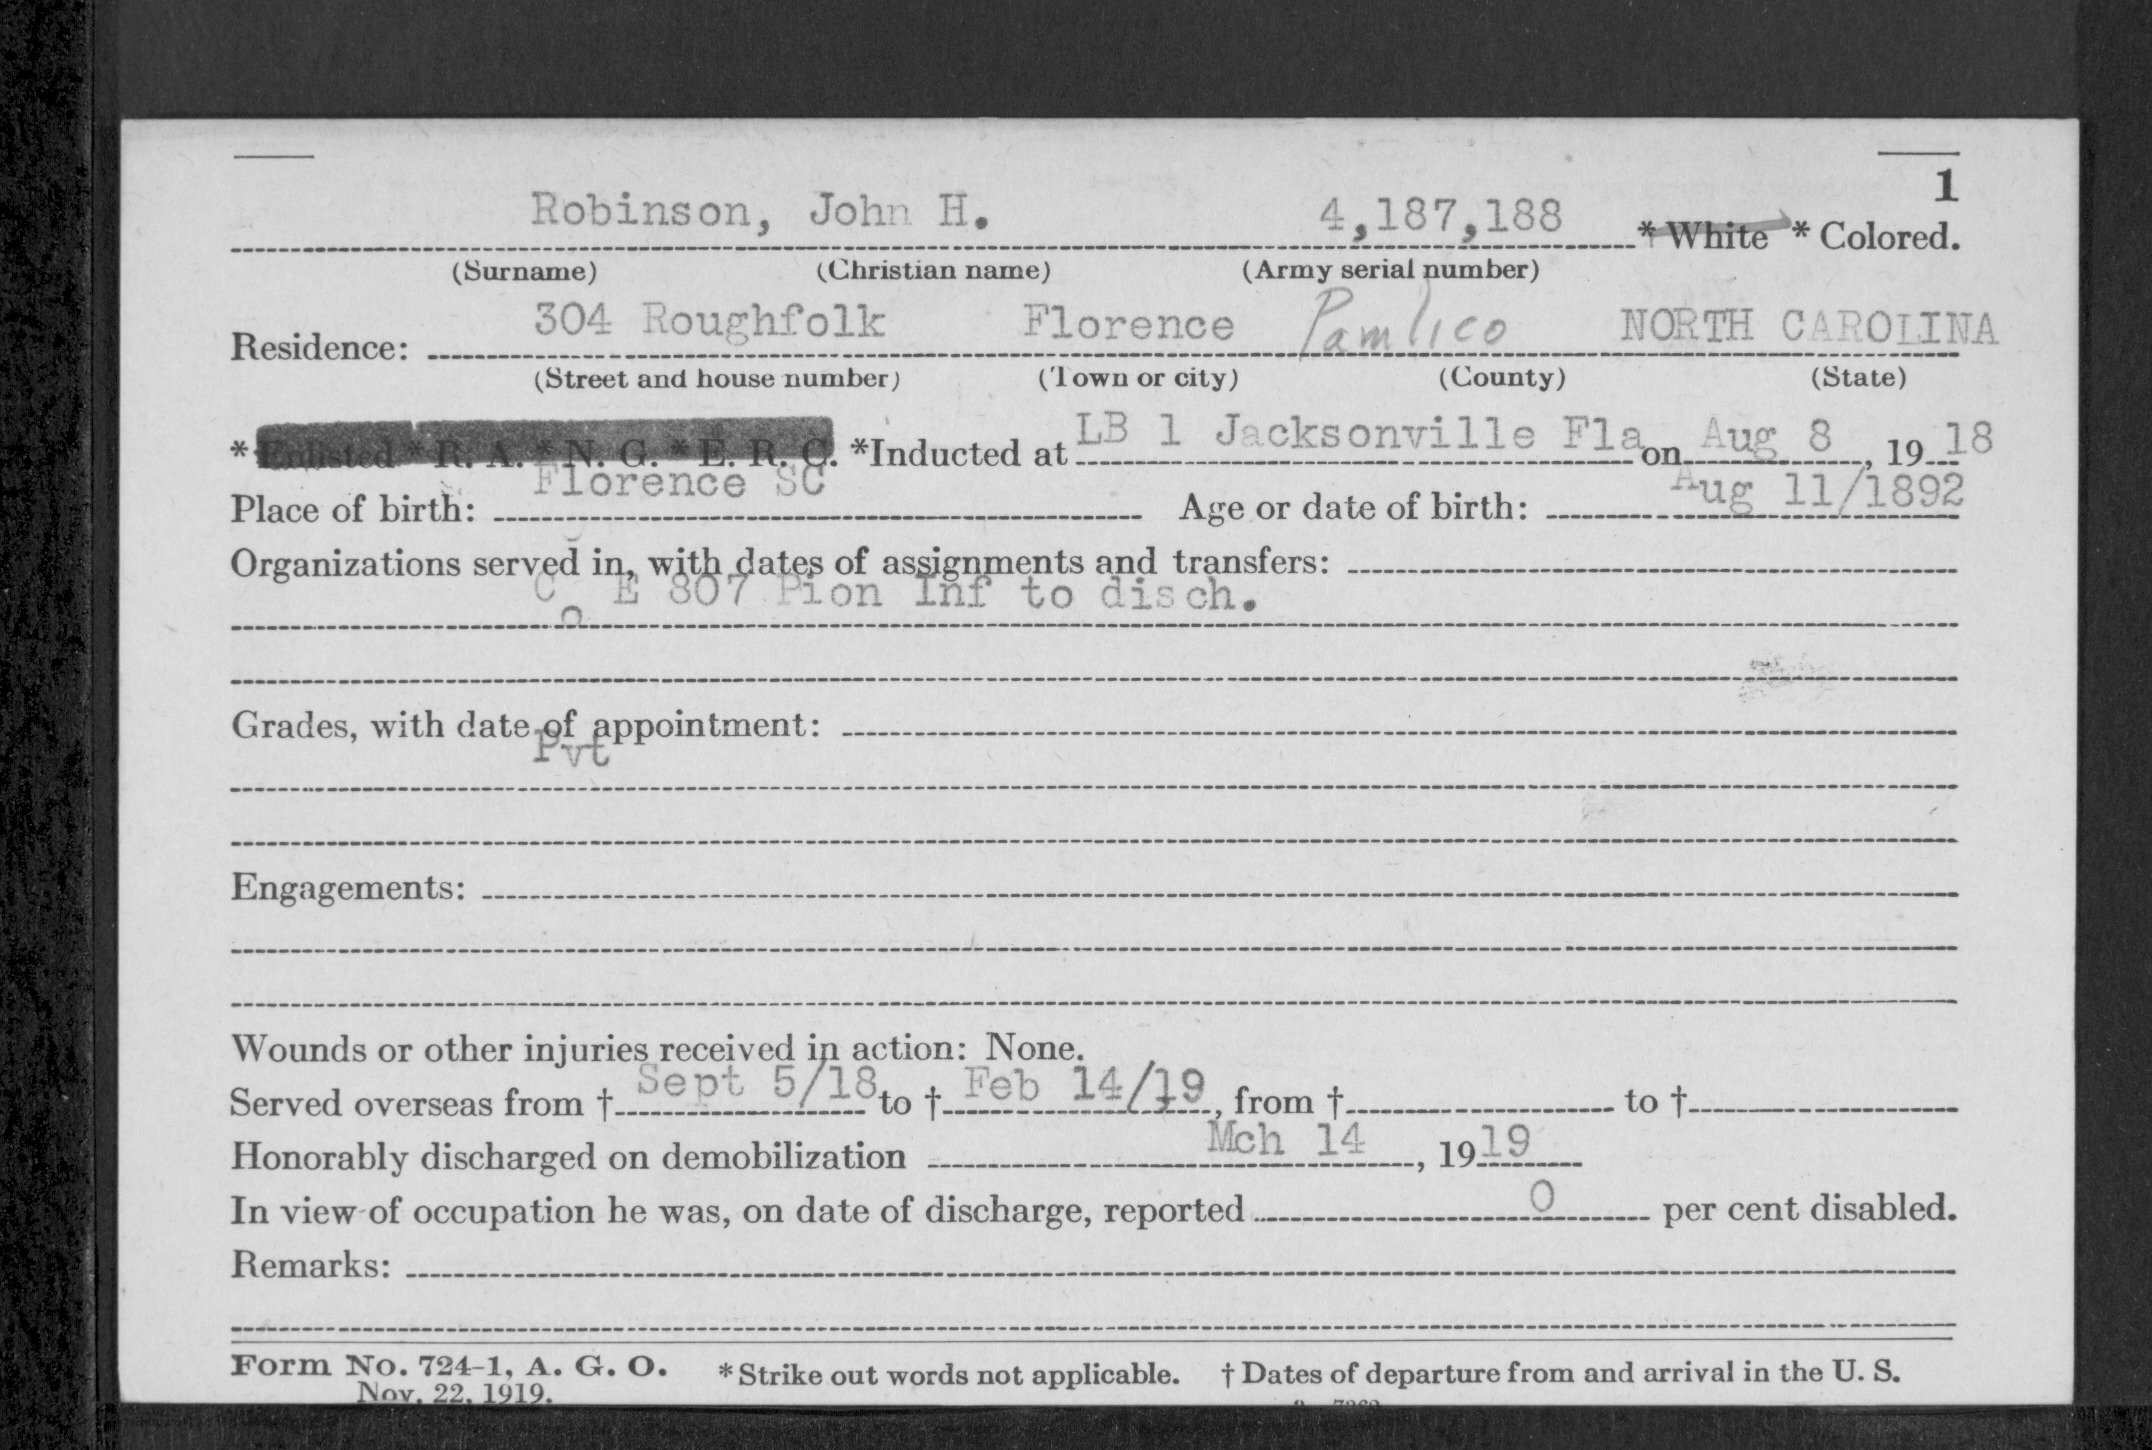 1
Robinson, John H. 4,187,188 * White * Colored.
(Surname) (Christian name) (Army serial number)
Residence: 304 Roughfolk Florence Pamlico NORTH CAROLINA
(Street and house number) (Town or city) (County) (State)
* Enlisted * R. A. * N. G. * E. R. C. *Inducted at LB 1 Jacksonville Fla on Aug 8, 1918
Place of birth: Florence SC Age or date of birth: Aug 11/1892
Organizations served in, with dates of assignments and transfers:
Co E 807 Pion Inf to disch.
Grades, with date of appointment:
Pvt
Engagements:
Wounds or other injuries received in action: None.
Served overseas from † Sept 5/18 to † Feb 14/19, from † to †
Honorably discharged on demobilization Mch 14, 1919
In view of occupation he was, on date of discharge, reported 0 per cent disabled.
Remarks:
Form No. 724-1, A. G. O. * Strike out words not applicable. † Dates of departure from and arrival in the U. S.
Nov. 22, 1919.